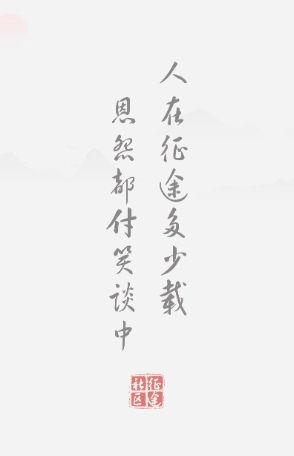 人在征途多少载
恩怨都付笑谈中
征途
社区